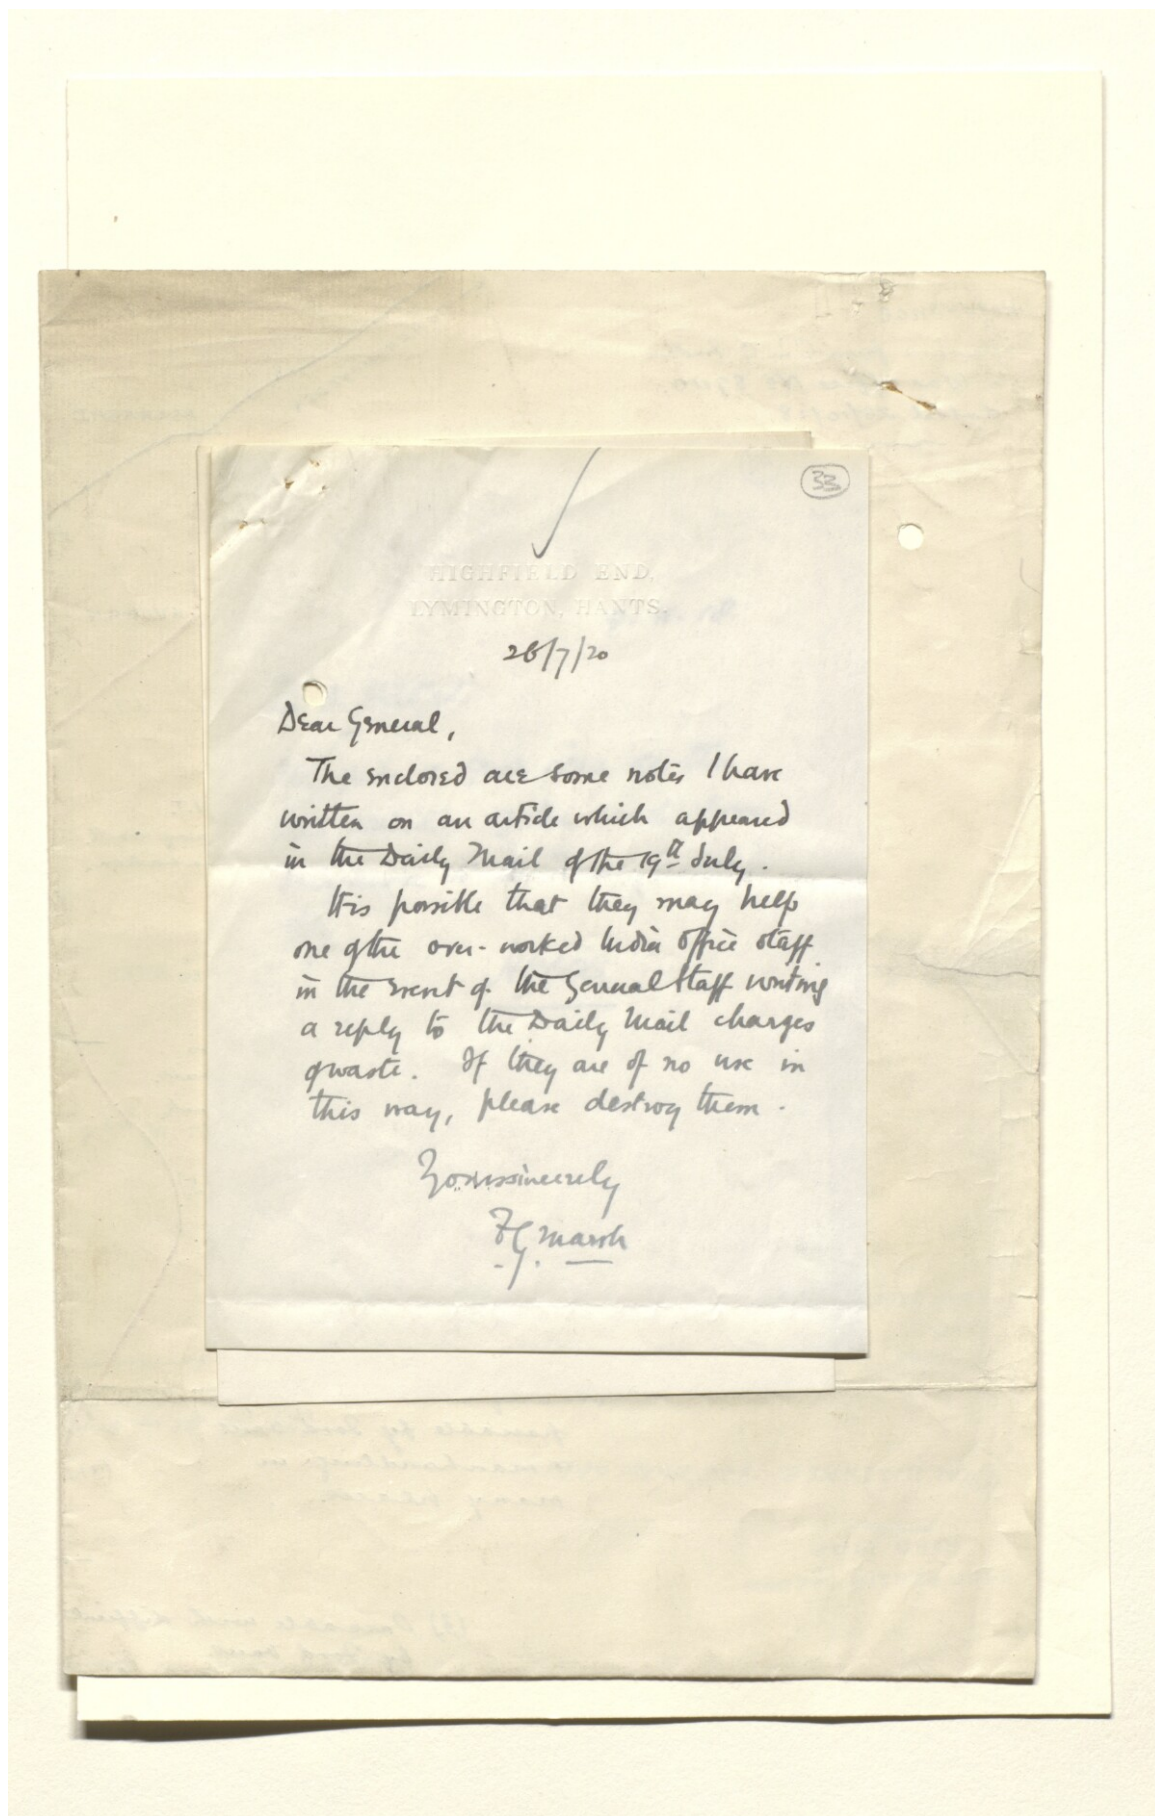 33
HIGHFIELD END,
LYMINGTON, HANTS.
26/7/20
Dear General,
The enclosed are some notes I have
written on an article which appeared
in the Daily Mail of the 19th July.
It is possible that they may help
one of the over-worked India Office staff
in the event of the General Staff writing
a reply to the Daily Mail charges
of waste. If they are of no use in
this way, please destroy them.
Yours sincerely
F.G. Marsh